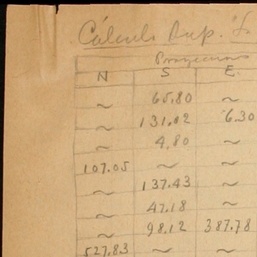 Cálculo Sup.
Proyecciones
N S E
~ 65.80 ~
~ 131.02 6.30
~ 4.80 ~
107.05 ~ ~
~ 137.43
~ 47.18 ~
~ 98.12 387.78
527.83 ~ ~